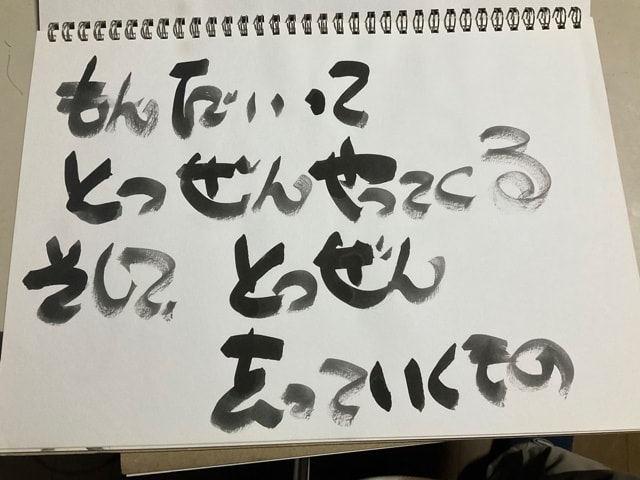 もんだいって
とつぜんやってくる
そして、とつぜん
去っていくもの